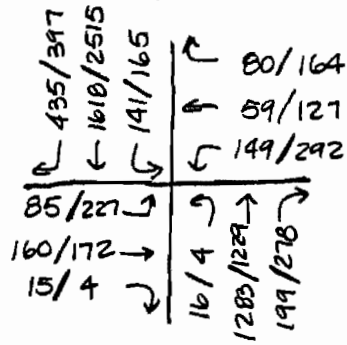 435/397
1618/2515
141/165
80/164
59/127
149/292
85/227
160/172
15/4
16/4
1283/1229
199/278